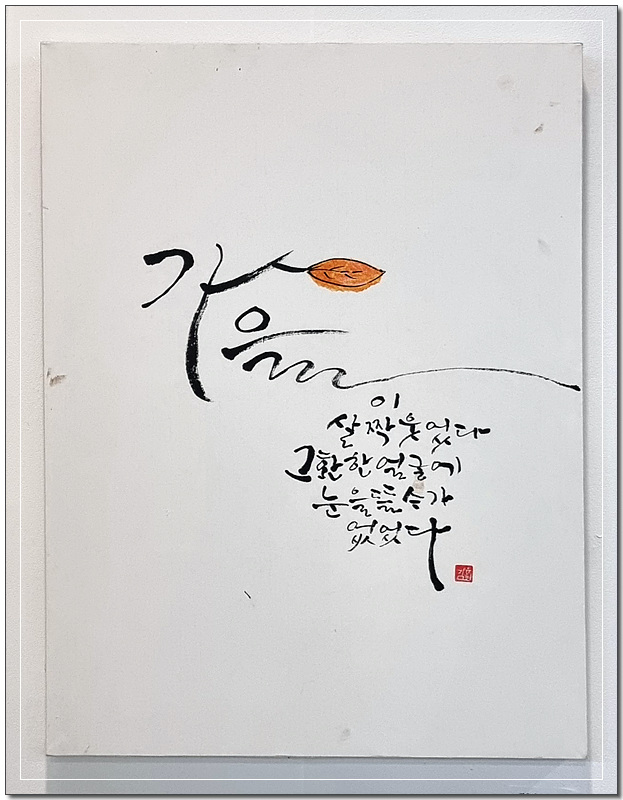 가을
이
살짝 웃었다
그 환한 얼굴에
눈을 뜰 수가
없었다